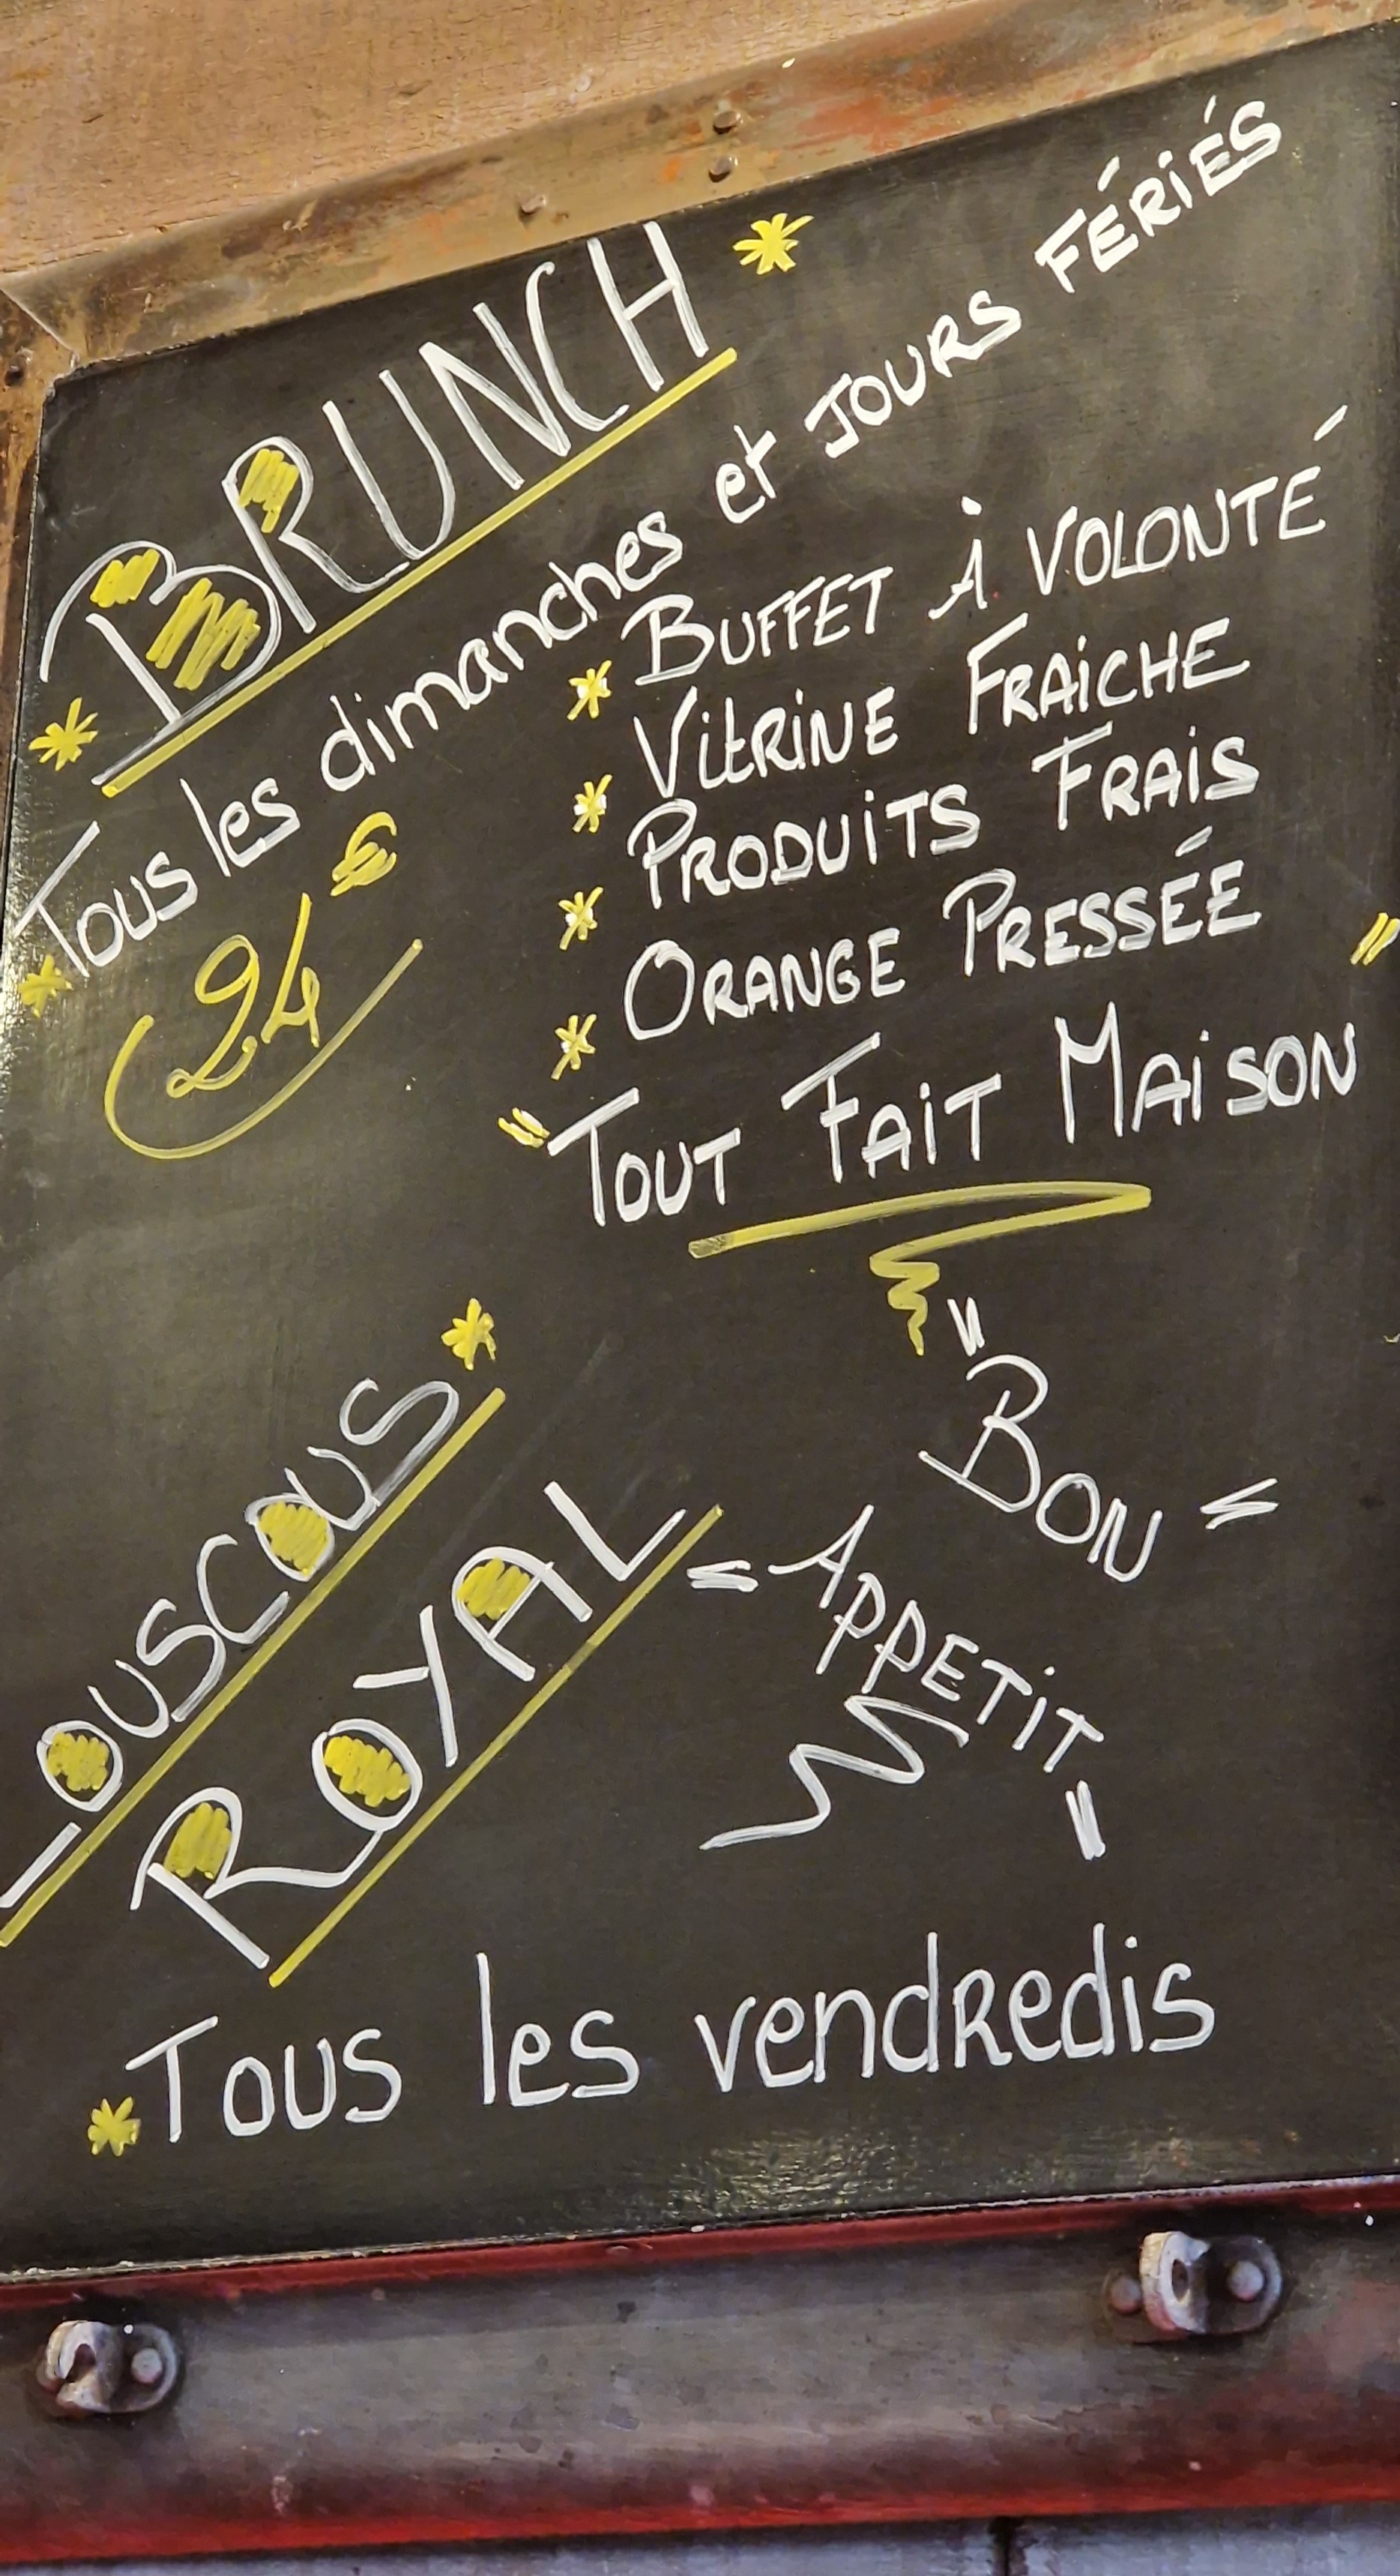 BRUNCH
Tous les dimanches et JOURS FÉRIÉS
24€
* BUFFET À VOLONTÉ
* VITRINE FRAICHE
* PRODUITS FRAIS
* ORANGE PRESSÉE
"TOUT FAIT MAISON"
COUSCOUS
ROYAL
"BON"
"APPETIT"
* Tous les vendredis